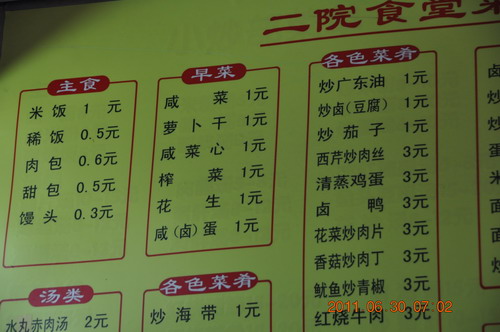 二院食堂菜
主食
米饭 1 元
稀饭 0.5元
肉包 0.6元
甜包 0.5元
馒头 0.3元
汤类
水丸赤肉汤 2元
早菜
咸菜 1元
萝卜干 1元
咸菜心 1元
榨菜 1元
花生 1元
咸(卤)蛋 1元
各色菜肴
炒海带 1元
各色菜肴
炒广东油 1元
炒卤(豆腐) 1元
炒茄子 1元
西芹炒肉丝 3元
清蒸鸡蛋 3元
卤鸭 3元
花菜炒肉片 3元
香菇炒肉丁 3元
鱿鱼炒青椒 3元
红烧牛肉 3元
2011.06.30 07:02